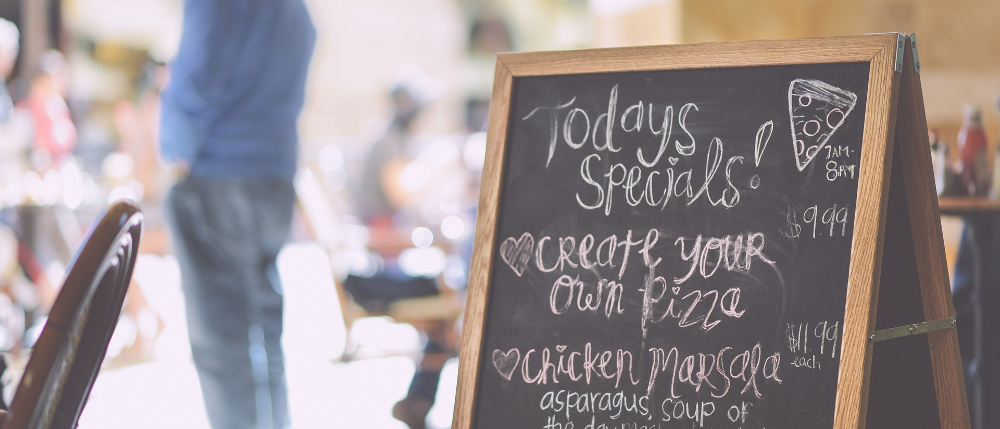 Todays
Specials!
7AM-
8PM
$9.99
CREATE YOUR
Own Pizza
$11.99
each
chicken Marsala
asparagus, soup of
the day